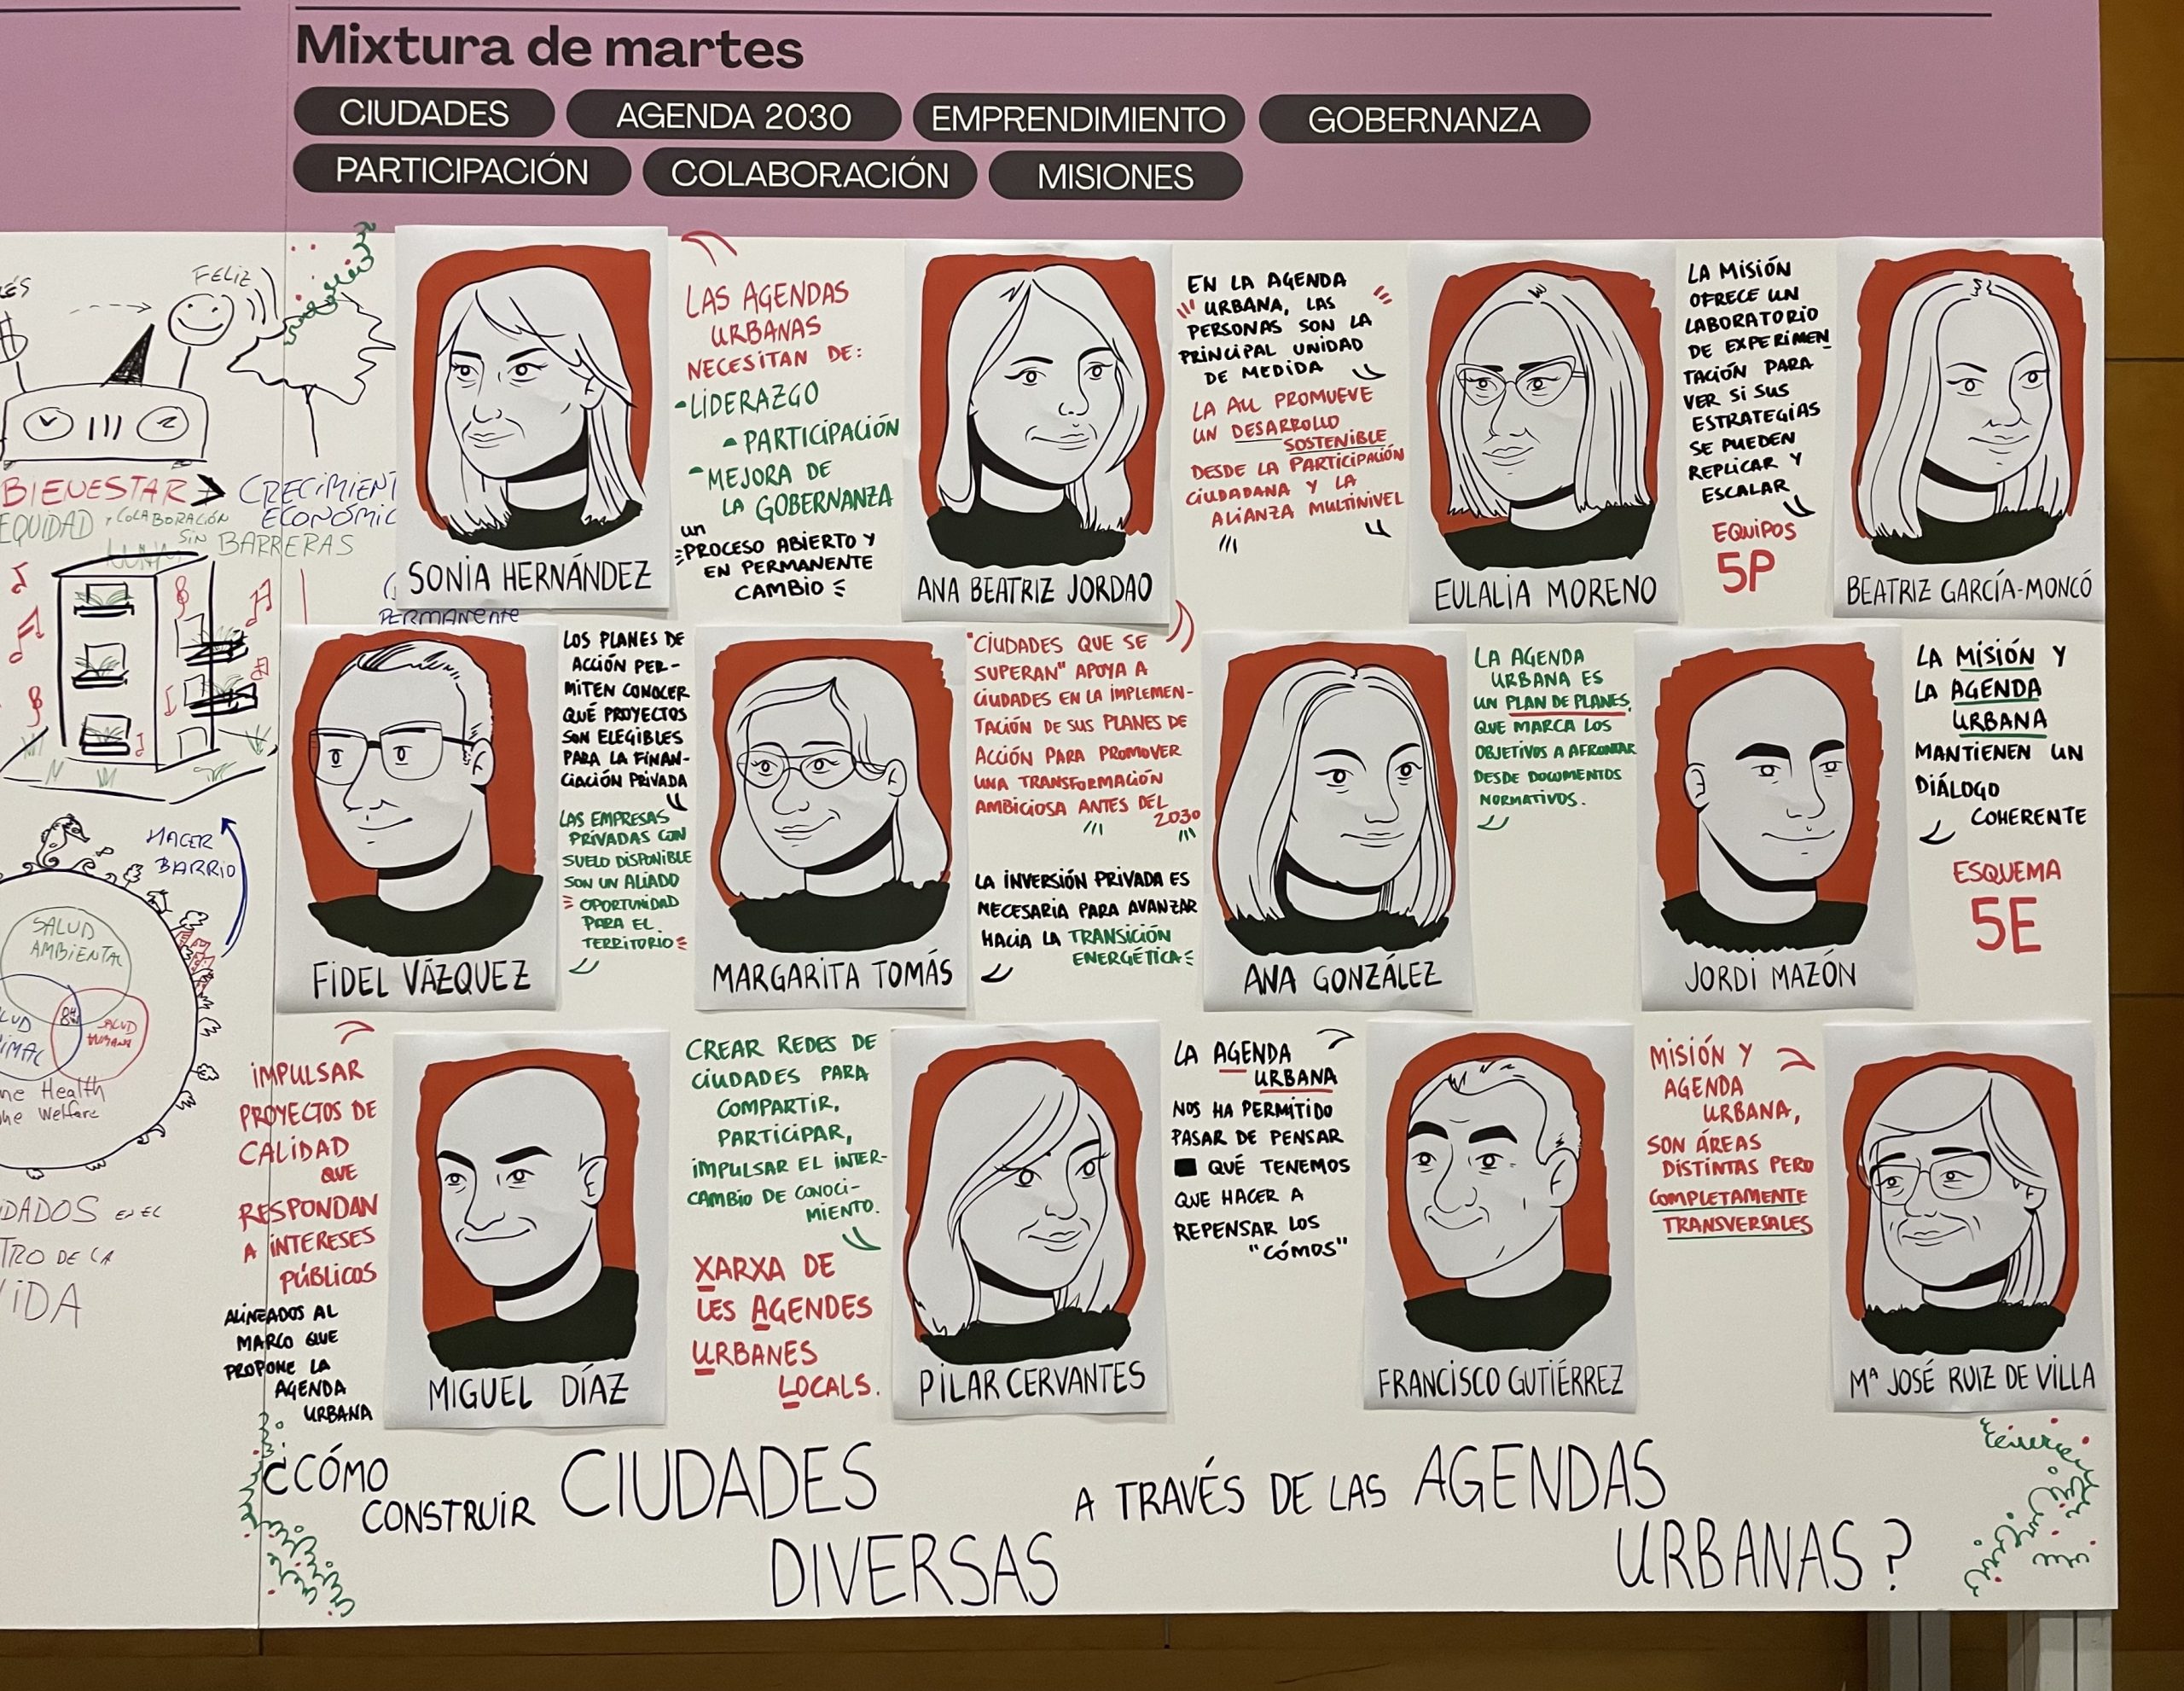 Mixtura de martes
CIUDADES
AGENDA 2030
EMPRENDIMIENTO
GOBERNANZA
PARTICIPACIÓN
COLABORACIÓN
MISIONES
FELIZ
BIENESTAR > CRECIMIENT
ECONÓMIC
EQUIDAD Y COLABORACIÓN
SIN BARRERAS
PERMANENTE
HACER
BARRIO
SALUD
AMBIENTAL
SALUD
HUMANA
Health
Welfare
DADOS EN EL
TRO DE LA
VIDA
SONIA HERNÁNDEZ
LAS AGENDAS
URBANAS
NECESITAN DE:
-LIDERAZGO
- PARTICIPACIÓN
- MEJORA DE
LA GOBERNANZA
un
PROCESO ABIERTO Y
EN PERMANENTE
CAMBIO
ANA BEATRIZ JORDAO
EN LA AGENDA
URBANA, LAS
PERSONAS SON LA
PRINCIPAL UNIDAD
DE MEDIDA
LA AU PROMUEVE
UN DESARROLLO
SOSTENIBLE
DESDE LA PARTICIPACIÓN
CIUDADANA Y LA
ALIANZA MULTINIVEL
EULALIA MORENO
LA MISIÓN
OFRECE UN
LABORATORIO
DE EXPERIMEN
TACIÓN PARA
VER SI SUS
ESTRATEGIAS
SE PUEDEN
REPLICAR Y
ESCALAR
EQUIPOS
5P
BEATRIZ GARCÍA-MONCÓ
FIDEL VÁZQUEZ
LOS PLANES DE
ACCIÓN PER-
MITEN CONOCER
QUÉ PROYECTOS
SON ELEGIBLES
PARA LA FINAN-
CIACIÓN PRIVADA
LAS EMPRESAS
PRIVADAS CON
SUELO DISPONIBLE
SON UN ALIADO
OPORTUNIDAD
PARA EL
TERRITORIO
MARGARITA TOMÁS
"CIUDADES QUE SE
SUPERAN" APOYA A
CIUDADES EN LA IMPLEMEN-
TACIÓN DE SUS PLANES DE
ACCIÓN PARA PROMOVER
UNA TRANSFORMACIÓN
AMBICIOSA ANTES DEL
2030
LA INVERSIÓN PRIVADA ES
NECESARIA PARA AVANZAR
HACIA LA TRANSICIÓN
ENERGÉTICA
ANA GONZÁLEZ
LA AGENDA
URBANA ES
UN PLAN DE PLANES,
QUE MARCA LOS
OBJETIVOS A AFRONTAR
DESDE DOCUMENTOS
NORMATIVOS.
JORDI MAZÓN
LA MISIÓN Y
LA AGENDA
URBANA
MANTIENEN UN
DIÁLOGO
COHERENTE
ESQUEMA
5E
IMPULSAR
PROYECTOS DE
CALIDAD
QUE
RESPONDAN
A INTERESES
PÚBLICOS
ALINEADOS AL
MARCO QUE
PROPONE LA
AGENDA
URBANA
MIGUEL DÍAZ
CREAR REDES DE
CIUDADES PARA
COMPARTIR,
PARTICIPAR,
IMPULSAR EL INTER-
CAMBIO DE CONOCI-
MIENTO.
XARXA DE
LES AGENDES
URBANES
LOCALS.
PILAR CERVANTES
LA AGENDA
URBANA
NOS HA PERMITIDO
PASAR DE PENSAR
QUÉ TENEMOS
QUE HACER A
REPENSAR LOS
"CÓMOS"
FRANCISCO GUTIÉRREZ
MISIÓN Y
AGENDA
URBANA,
SON ÁREAS
DISTINTAS PERO
COMPLETAMENTE
TRANSVERSALES
Mª JOSÉ RUIZ DE VILLA
¿CÓMO
CONSTRUIR CIUDADES
DIVERSAS
A TRAVÉS DE LAS AGENDAS
URBANAS?